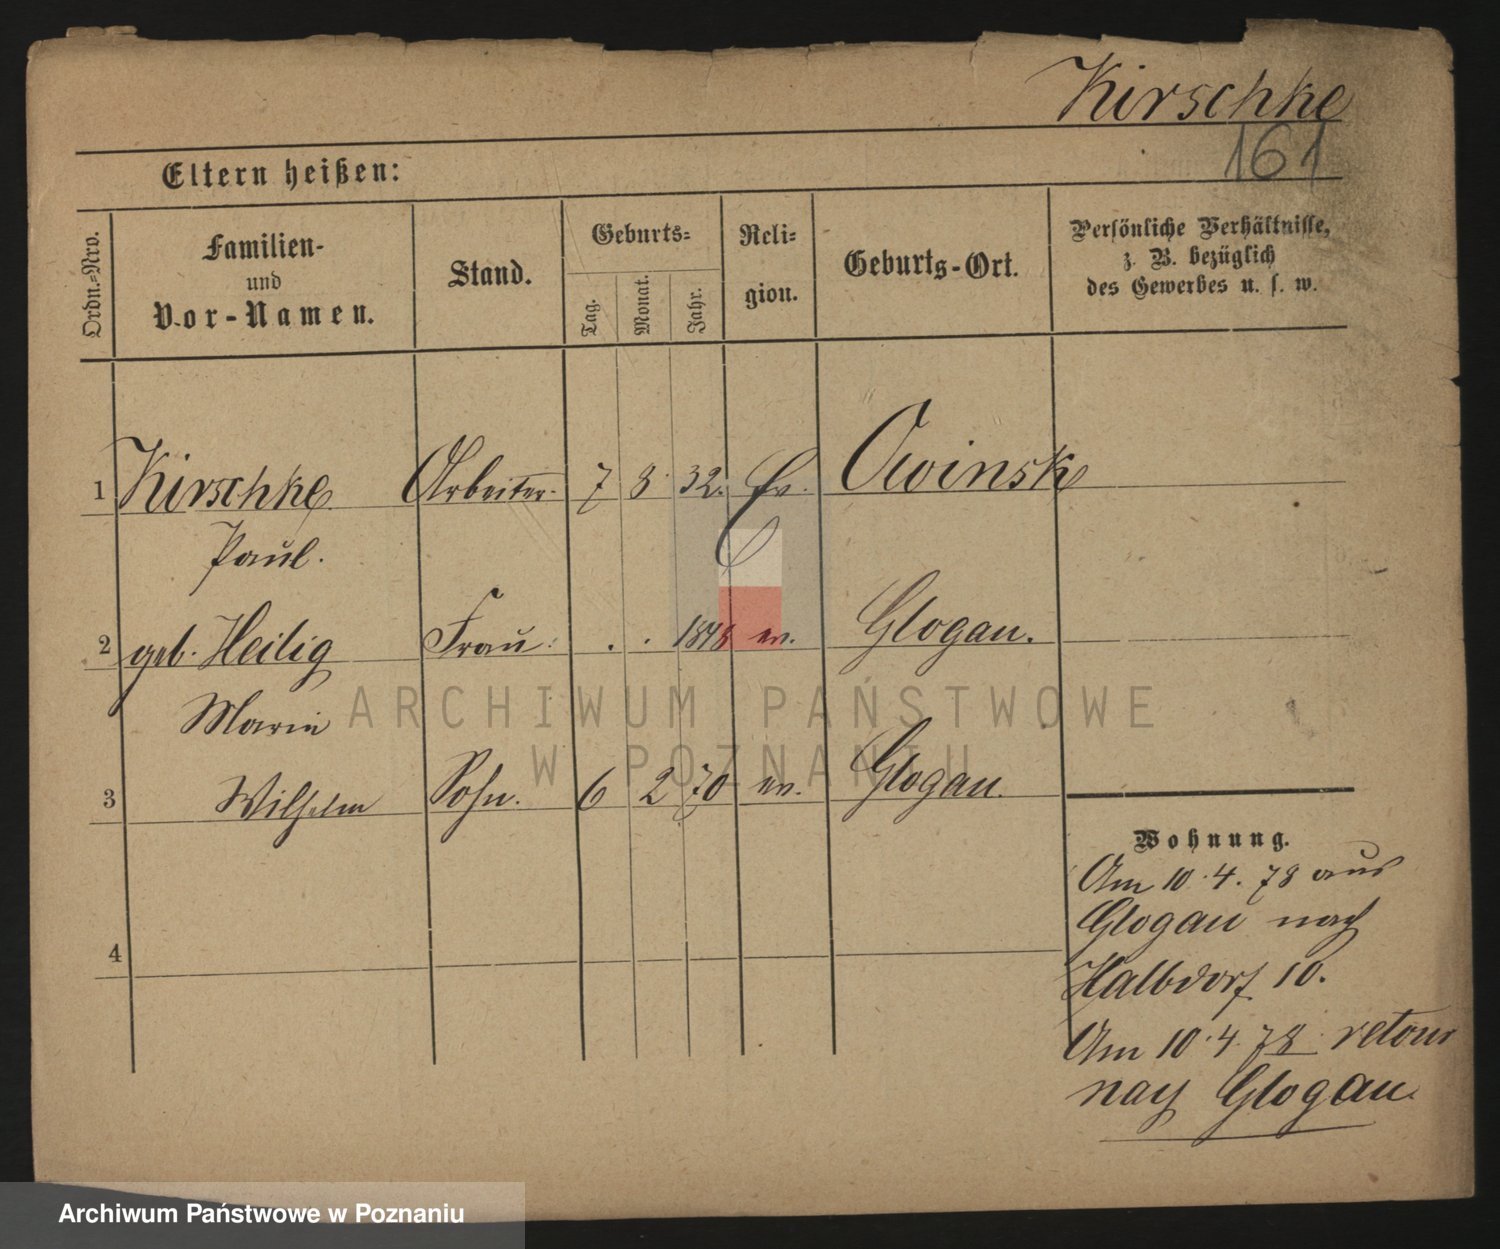 Kirschke
161
Eltern heißen:
Ordn.=Nro.
Familien-
und
Vor-Namen.
Stand.
Geburts=
Tag.
Monat.
Jahr.
Reli=
gion.
Geburts-Ort.
Persönliche Verhältnisse,
z. B. bezüglich
des Gewerbes u. s. w.
1 Kirschke Arbeiter. 7 8 32. Ev. Owinsk
Paul.
2 geb. Heilig Frau. . . 1848 ev. Glogau.
Marie
3 Wilhelm Sohn. 6 2 70 ev. Glogau.
4
Wohnung.
Am 10.4.78 aus
Glogau nach
Halbdorf 10.
Am 10.4.78 retour
nach Glogau.
ARCHIWUM PAŃSTWOWE
W POZNANIU
Archiwum Państwowe w Poznaniu